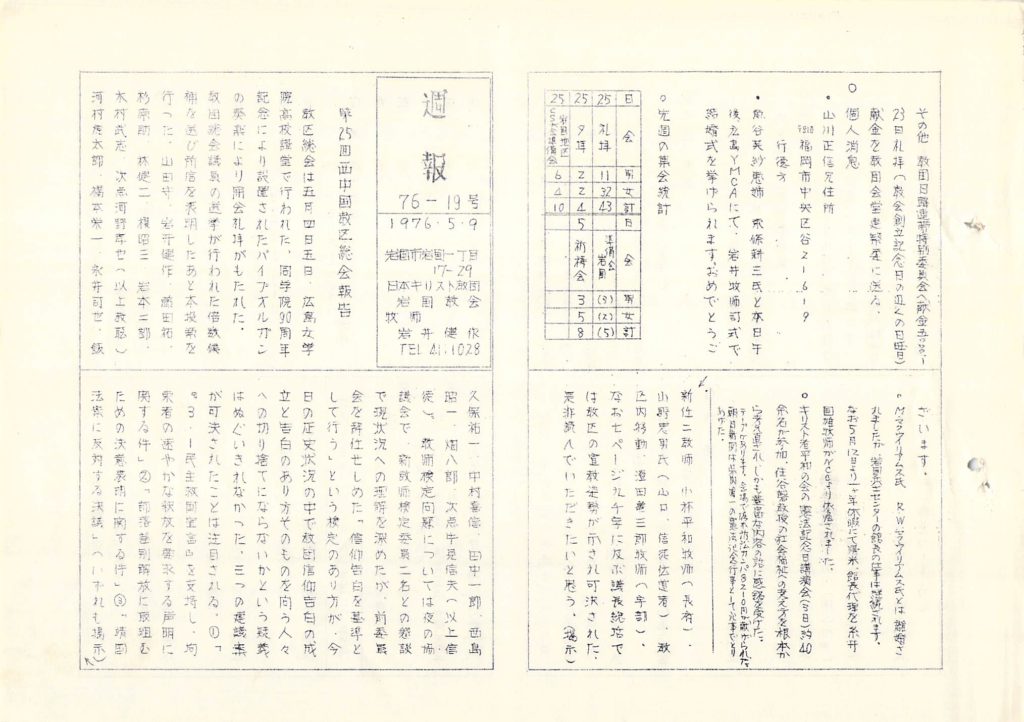 週報
76-19号
1976・5・9
岩国市岩国一丁目
17-29
日本キリスト教団
岩国教会
牧師
岩井健作
TEL 41.1028
第25回西中国教区総会報告
教区総会は五月四日五日、広島女学
院高校講堂で行われた。同学院90周年
記念により設置されたパイプオルガン
の奏楽により開会礼拝がもたれた。
教団総会議員の選挙が行われた
行った。山田守、岩井健作
杉原助、林健二、横田三、岩本二郎、
木村武志、次点河野孝世(以上教職)
河村庄太郎、橋本栄一、永井可世、飯
久保祐一、中村喜信、田中一郎、西島
昭一、畑八郎、次点宇児信夫(以上信
徒)。教師検定問題については夜の協
議会で、新教師検定委員二名との懇談
で現状況への理解を深めたが、前委員
会を辞任せしめた「信仰告白を基準と
して行う」という検定のあり方が、今
日の歴史状況の中で教団信仰告白の成
立と告白のあり方そのものを問う人々
への切り捨てにならないかという疑義
はぬぐいきれなかった。三つの建議案
が可決されたことは注目される。①「
3・1民主救国宣言」を支持し、拘
束者の速やかな釈放を要求する声明に
関する件」②「部落差別解放に取組む
ための決意表明に関する件」③「靖国
法案に反対する決議」(いずれも掲示)
新任二教師 小林平和牧師(長府)、
山野忠男氏(山口、信徒伝道者)、教
区内移動、澄田善三郎牧師(宇部)、
なお七ページ九千字に及ぶ議長総括で
は教区の宣教姿勢が示され可決された。
是非読んでいただきたいと思う。(掲示)
その他 教団日韓連帯特別委員会へ献金
23日礼拝(教会創立記念日の近くの日曜日)
献金を教団会堂建築委に送る。
○ 個人消息
・山川正信兄住所
福岡市中央区谷2-1-6-19
行徳方
・魚谷美紗恵姉 东條耕三氏と本日午
後広島YMCAにて、岩井牧師司式で
結婚式を挙げられます。おめでとうご
ざいます。
○先週の集会統計
日 会 男 女 計
25 礼拝 11 32 43
25 夕拝 2 2 4
25 岩国地区CS大会準備会 6 4 10
日 会 男 女 計
準備会岩国 (3) (2) (5)
5 祈祷会 3 5 8
・M.マクウィリアムス氏 R.W.マクウィリアムス氏とは離婚さ
れましたが、岩国兵士センターの館長の仕事は継続されます。
なお5月12日より一ケ年休暇にて帰米、館長代理を糸井
国雄牧師がNCCより依嘱されました。
○キリスト者平和の会の憲法記念日講演会(3日)約40
余名が参加。住谷馨教授の社会福祉への考え方を根本か
ら考え直され、しかも豊富な内容の話に感銘を受けた。
テープがあります。会場で岩国兵士カンパ8210円が献げられた。
朝日新聞は県内唯一の憲法記念行事として記事でとり
あげた。